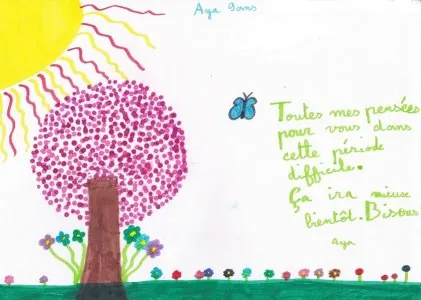 Aya 9ans
Toutes mes pensées
pour vous dans
cette période
difficile.
Ça ira mieux
bientôt. Bisous
Aya